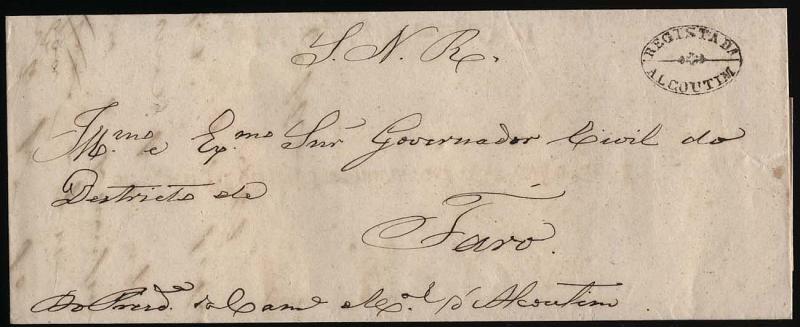 S. N. R.
REGISTADA
ALCOUTIM
Il.mo e Ex.mo Snr Governador Civil do
Districto de
Faro.
Do Presid.te da Cam.a M.al d'Alcoutim